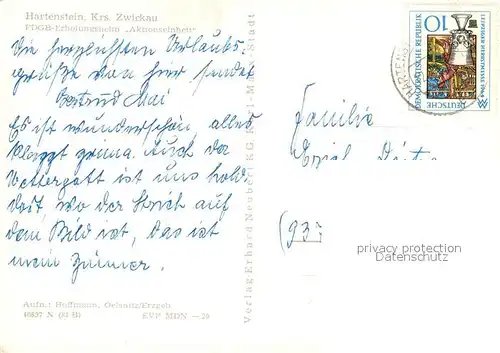 Hartenstein, Krs. Zwickau
FDGB-Erholungsheim „Aktionseinheit"
Die herzlichsten Urlaubs-
grüße von hier sendet
Gertrud Mai
Es ist wunderschön alles
klappt prima. Auch der
Wettergott ist uns hold.
Dort wo der Strich auf
dem Bild ist, das ist
mein Zimmer.
Aufn.: Hoffmann, Oelsnitz/Erzgeb
EVP MDN —20
Verlag Erhard Neubert KG, Karl-Marx-Stadt
Familie
(937
privacy protection
Datenschutz
10
DEUTSCHE
DEMOKRATISCHE REPUBLIK
LEIPZIGER HERBSTMESSE 1964